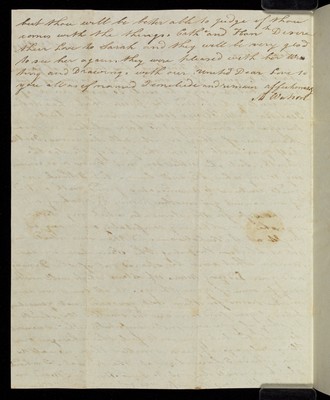 but thou will be better able to judge of them
comes with the things Cath and Hanh Desire
their love to Sarah and they will be very glad
to see her again they were pleased with her Wri
ting and Drawings with our united Dear love to
you all as if named I conclude and remain affectionately
M Watson